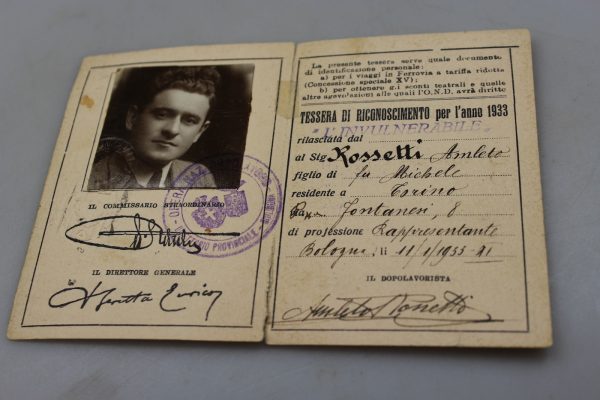 IL COMMISSARIO STRAORDINARIO
IL DIRETTORE GENERALE
Beretta Enrico
La presente tessera serve quale documento
di identificazione personale:
a) per i viaggi in Ferrovia a tariffa ridotta
(Concessione speciale XV);
b) per ottenere gli sconti teatrali e quelle
altre agevolazioni alle quali l'O.N.D. avrà diritto
TESSERA DI RICONOSCIMENTO per l'anno 1933
"L'INVULNERABILE"
rilasciata dal
al Sig. Rossetti Amleto
figlio di fu Michele
residente a Torino
Fontanesi, 8
di professione Rappresentante
Bologna, li 11/1/1933-XI
IL DOPOLAVORISTA
Amleto Rossetti